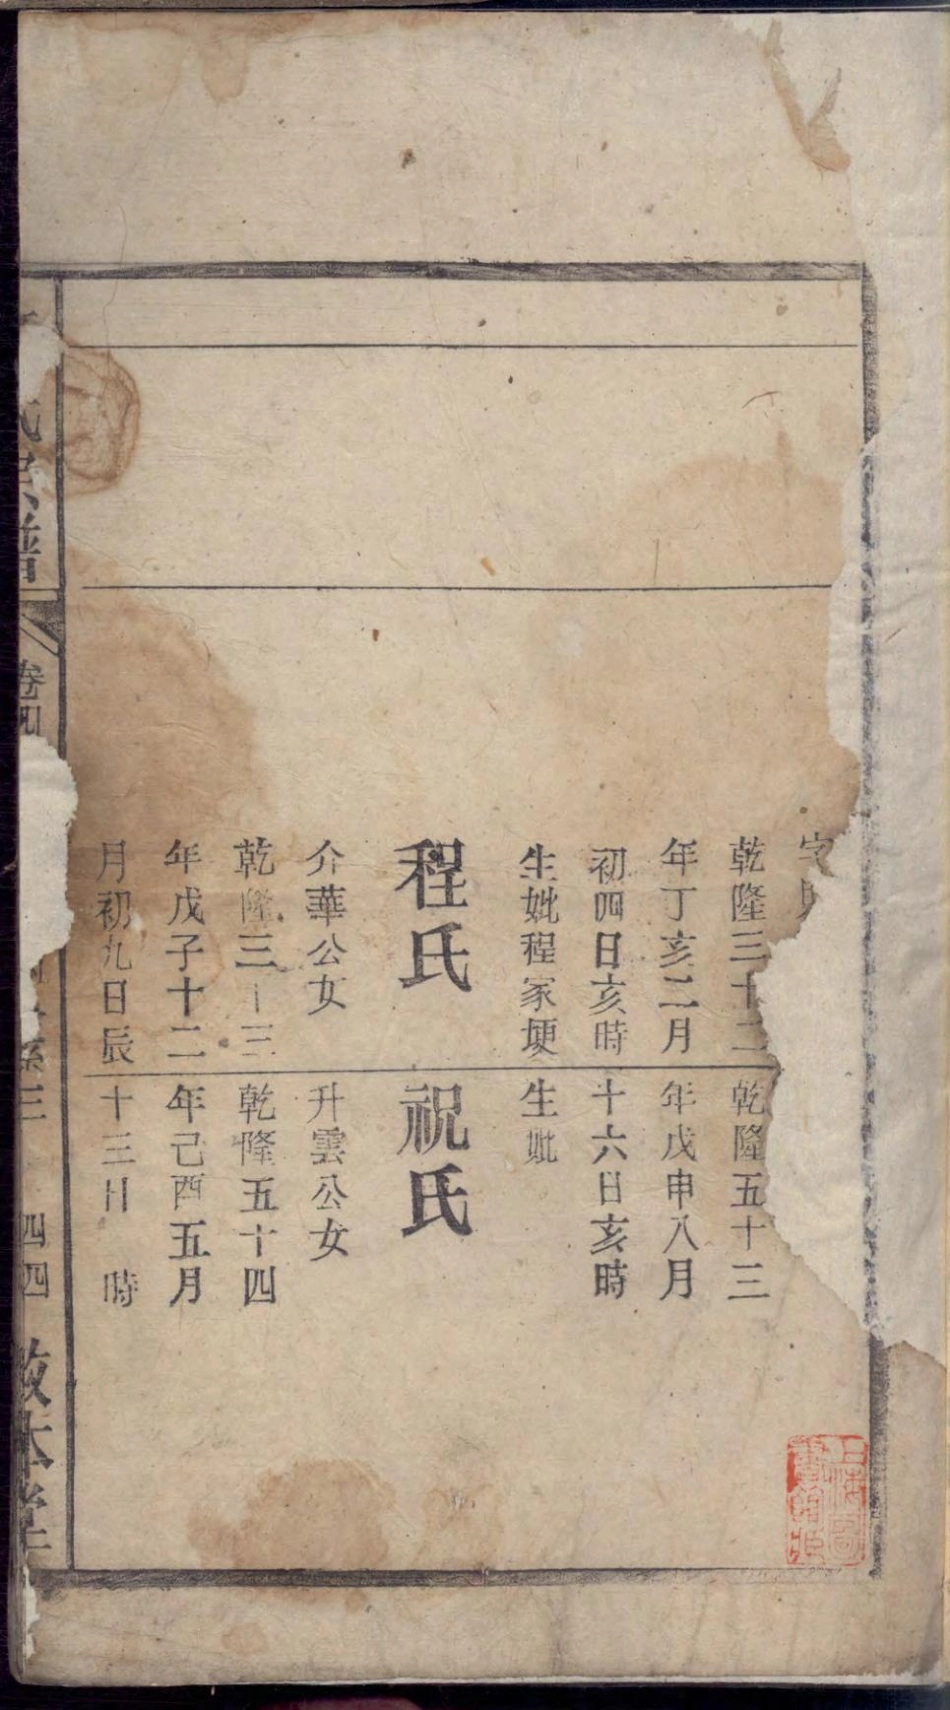 字
乾隆三十二
年丁亥二月
初四日亥時
生妣程家埂
程氏
介華公女
乾隆三十三
年戊子十二
月初九日辰
乾隆五十三
年戊申八月
十六日亥時
生妣
祝氏
升雲公女
乾隆五十四
年己酉五月
十三日 時
氏宗譜
卷四
系三
四四
敦本堂
上海圖
書館藏